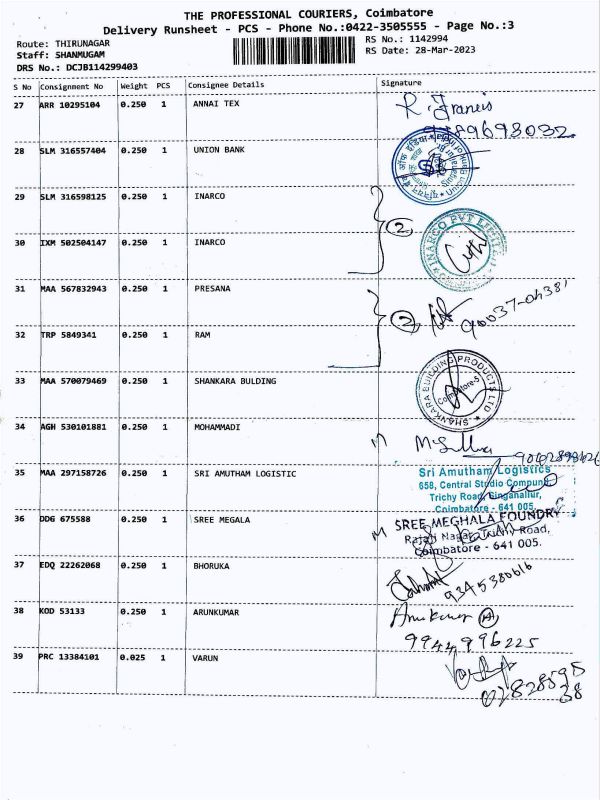 THE PROFESSIONAL COURIERS, Coimbatore
Delivery Runsheet - PCS - Phone No.:0422-3505555 - Page No.:3
Route: THIRUNAGAR RS No.: 1142994
Staff: SHANMUGAM RS Date: 28-Mar-2023
DRS No.: DCJB114299403
S No Consignment No Weight PCS Consignee Details Signature
27 ARR 10295104 0.250 1 ANNAI TEX R. Francis
28 SLM 316557404 0.250 1 UNION BANK
29 SLM 316598125 0.250 1 INARCO
2
INARCO PVT LIMITED
30 IXM 502504147 0.250 1 INARCO
31 MAA 567832943 0.250 1 PRESANA
2
32 TRP 5849341 0.250 1 RAM
33 MAA 570079469 0.250 1 SHANKARA BULDING
SHANKARA BUILDING PRODUCTS LTD
Coimbatore-5
34 AGH 530101881 0.250 1 MOHAMMADI
35 MAA 297158726 0.250 1 SRI AMUTHAM LOGISTIC
Sri Amutham Logistics
658, Central Studio Compund,
Trichy Road, Singanallur,
Coimbatore - 641 005.
36 DDG 675588 0.250 1 SREE MEGALA
SREE MEGHALA FOUNDRY
Rajaji Nagar, Trichy Road,
Coimbatore - 641 005.
37 EDQ 22262068 0.250 1 BHORUKA
9345380616
38 KOD 53133 0.250 1 ARUNKUMAR Arunkumar
9944996225
39 PRC 13384101 0.025 1 VARUN